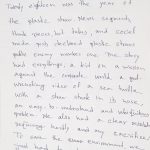 Twenty eighteen was the year of
the plastic straw. News segments,
think pieces, hot takes, and social
media posts declared plastic straws
public enemy number one. The story
had everything, a kid on a mission
against the corporate world, a gut-
wrenching video of a sea turtle
with a straw stuck in its nose,
an easy to understand and
problem. We also had a clear
hardly any sacrifice
To save the environment, we
just had